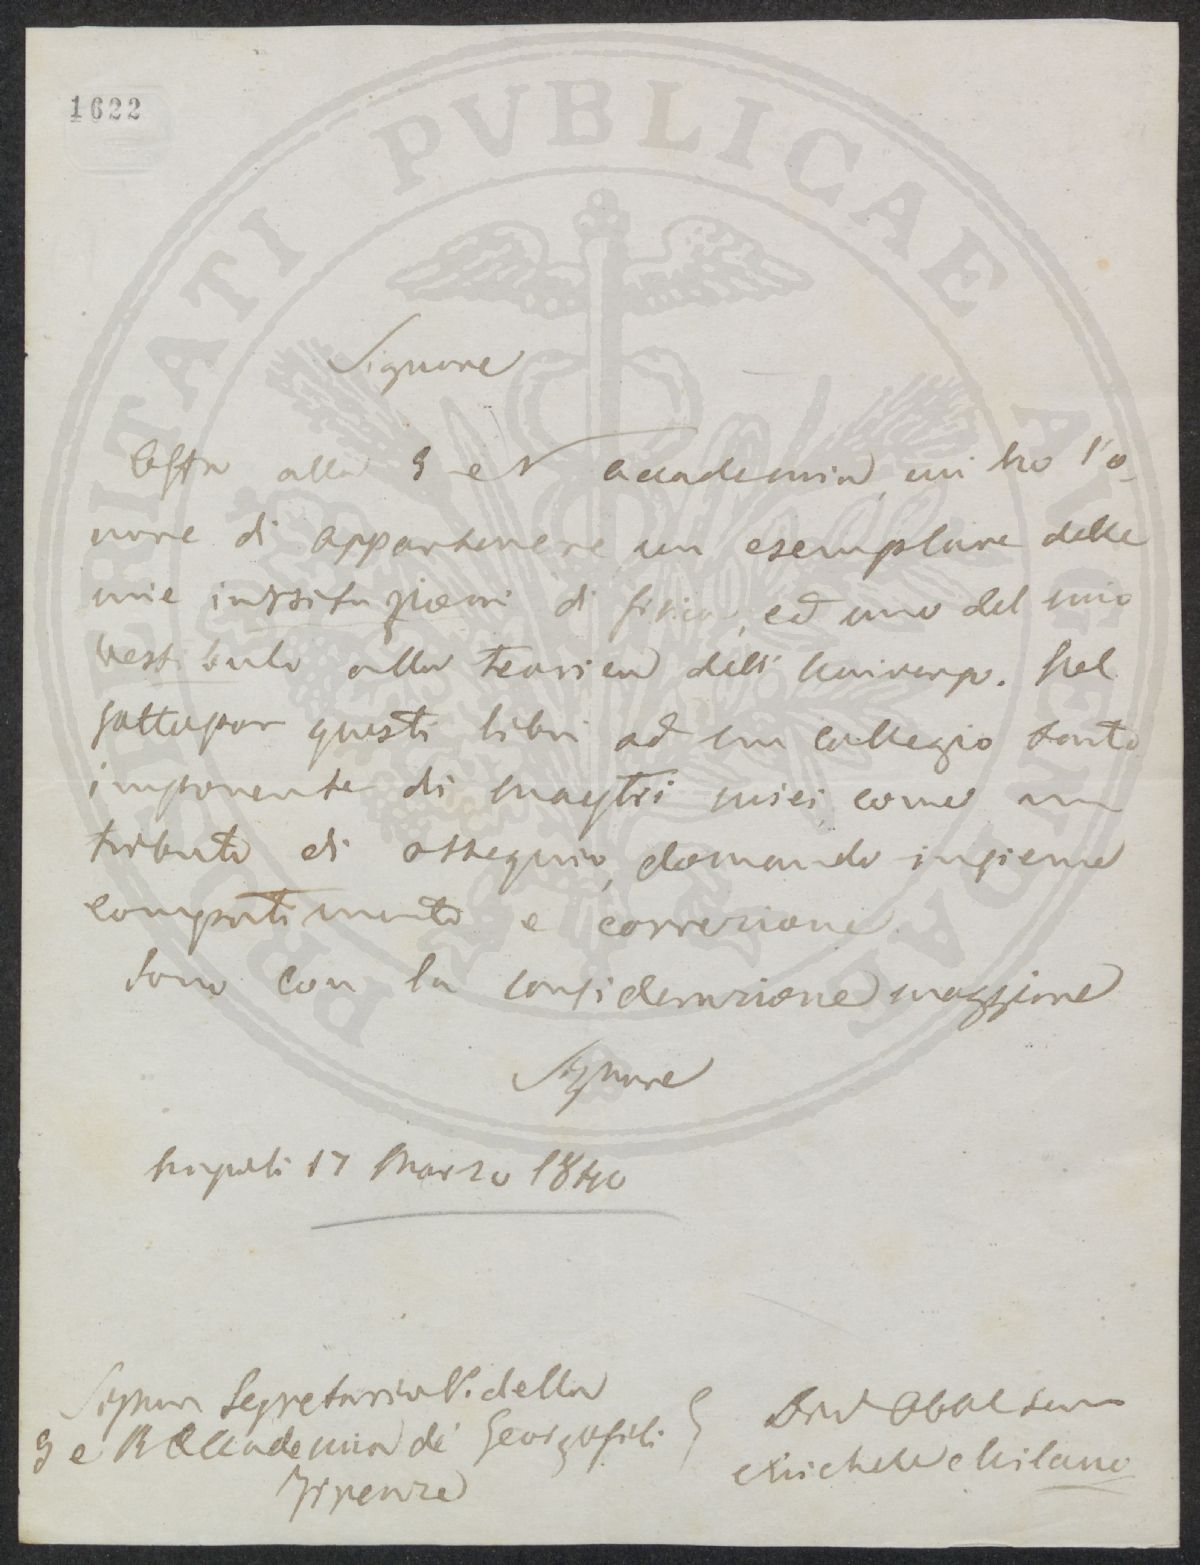 1622
PROSPERITATI PVBLICAE AVGENDAE
Signore
Offro alla I e R accademia, cui ho l'o-
nore di appartenere un esemplare delle
mie instituzioni di fisica, ed uno del mio
vestibulo alla teorica dell' universo. Nel
sottopor questi libri ad un collegio tanto
imponente di maestri miei, come un
tributo di ossequio, domando insieme
compatimento e correzione.
Sono con la considerazione maggiore
Signore
Napoli 17 Marzo 1840
Signor Segretario della
I e R Accademia de' Georgofili
Firenze
Michele Milano